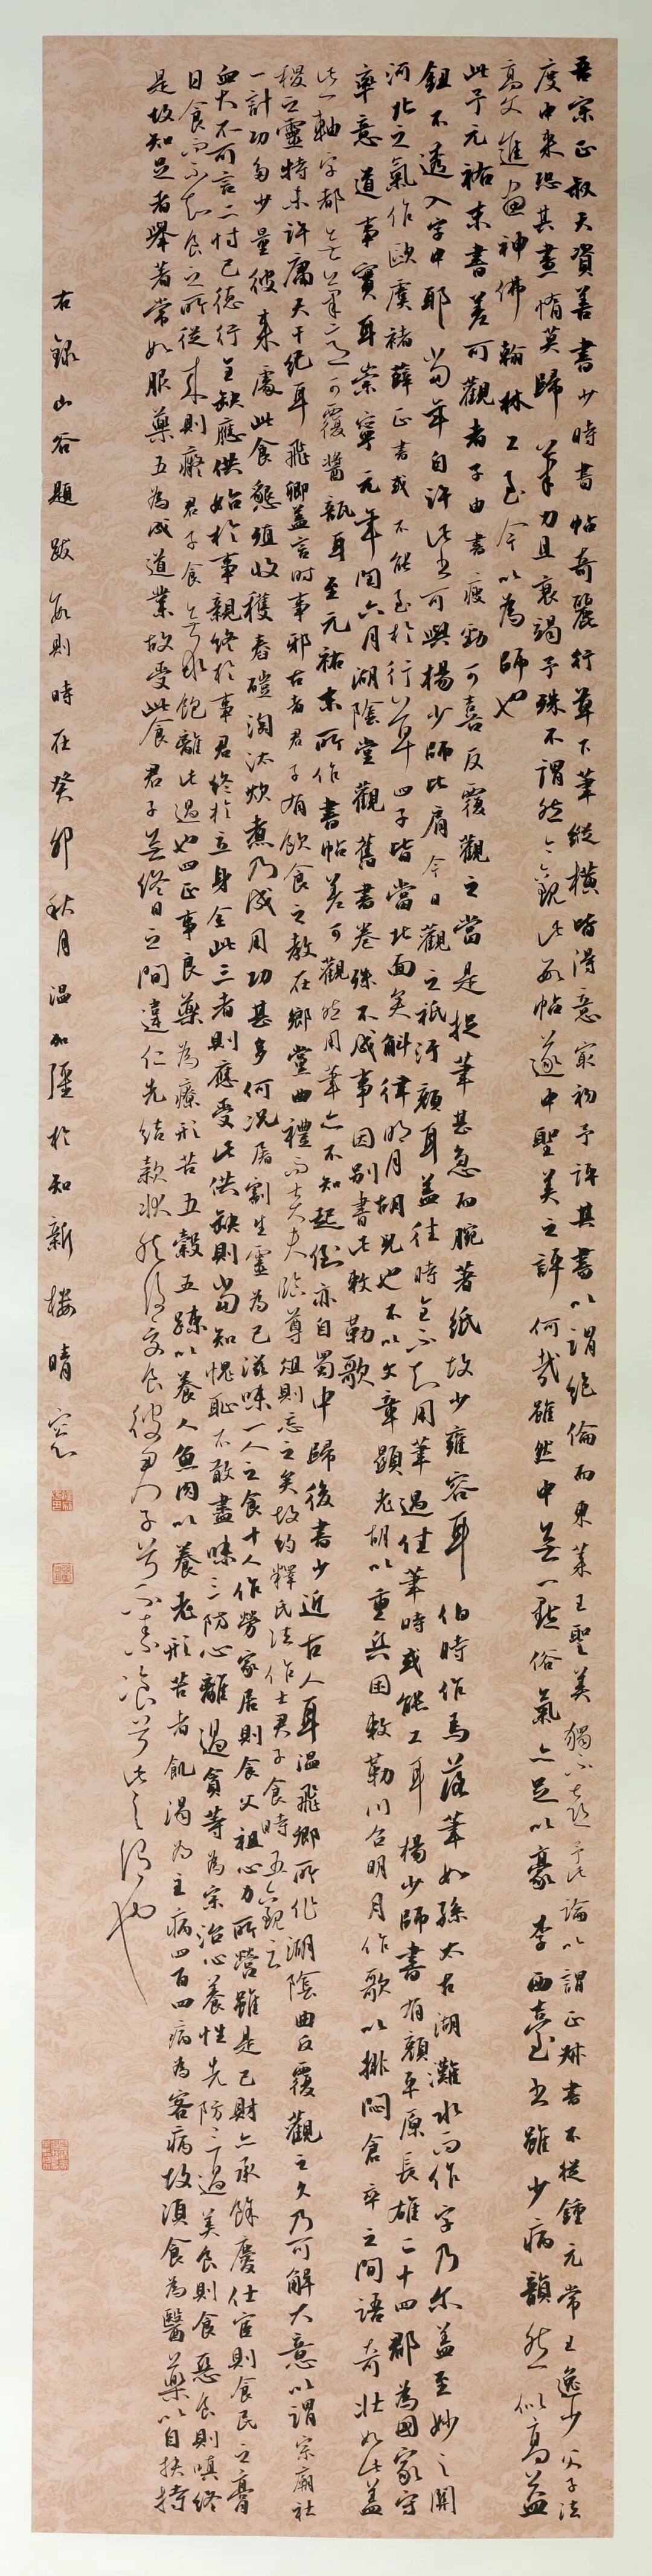 吾宗正叔天資善書少時書帖奇麗行草下筆縱橫皆得意家初予許其書以謂絕倫而東萊王聖美獨不喜予此論以謂正叔書不從鍾元常王逸少父子法
度中來恐其晝惰莫歸筆力且衰竭予殊不謂然今觀此數帖遂中聖美之評何哉雖然中無一點俗氣亦足以豪李西臺書雖少病韻然似高益
高文進畫神佛翰林工至今以為師也
此予元祐末書差可觀者子由書瘦勁可喜反覆觀之當是捉筆甚急而腕著紙故少雍容耳伯時作馬落筆如孫太古湖灘水而作字乃爾蓋至妙之關
鈕不透入字中耶當年自許此書可與楊少師比肩今日觀之祇汗顏耳蓋往時全不知用筆過佳筆時或能工耳楊少師書有顏平原長雄二十四郡為國家守
河北之氣作歐虞褚薛正書或不能至於行草四子皆當北面矣斛律明月胡兒也不以文章顯老胡以重兵困敕勒川召明月作歌以排悶倉卒之間語奇壯如此蓋
率意道事實耳崇寧元年閏六月湖陰堂觀舊書卷殊不成事因別書此敕勒歌
此一軸字都無筆意可覆醬瓿耳至元祐末所作書帖差可觀然用筆亦不知起倒亦自蜀中歸後書少近古人耳溫飛卿所作湖陰曲反覆觀之久乃可解大意以謂宗廟社
稷之靈特未許庸夫干紀耳飛卿蓋言時事邪古者君子有飲食之教在鄉黨曲禮而士大夫臨尊俎則忘之矣故約釋氏法作士君子食時五觀云
一計功多少量彼來處此食墾殖收穫舂磑淘汰炊煮乃成用功甚多何況屠割生靈為己滋味一人之食十人作勞家居則食父祖心力所營雖是己財亦承餘慶仕宦則食民之膏
血大不可言二忖己德行全缺應供始於事親終於事君終於立身全此三者則應受此供缺則當知愧恥不敢盡味三防心離過貪等為宗治心養性先防三過美食則食惡食則嗔終
日食而不知食之所從來則癡君子食無求飽離此過也四正事良藥為療形苦五穀五蔬以養人魚肉以養老形苦者飢渴為主病四百四病為客病故須食為醫藥以自扶持
是故知足者舉著常如服藥五為成道業故受此食君子無終日之間違仁先結款狀然後受食彼君子兮不素飡兮此之謂也
右錄山谷題跋數則時在癸卯秋月溫如隆於知新樓晴窗